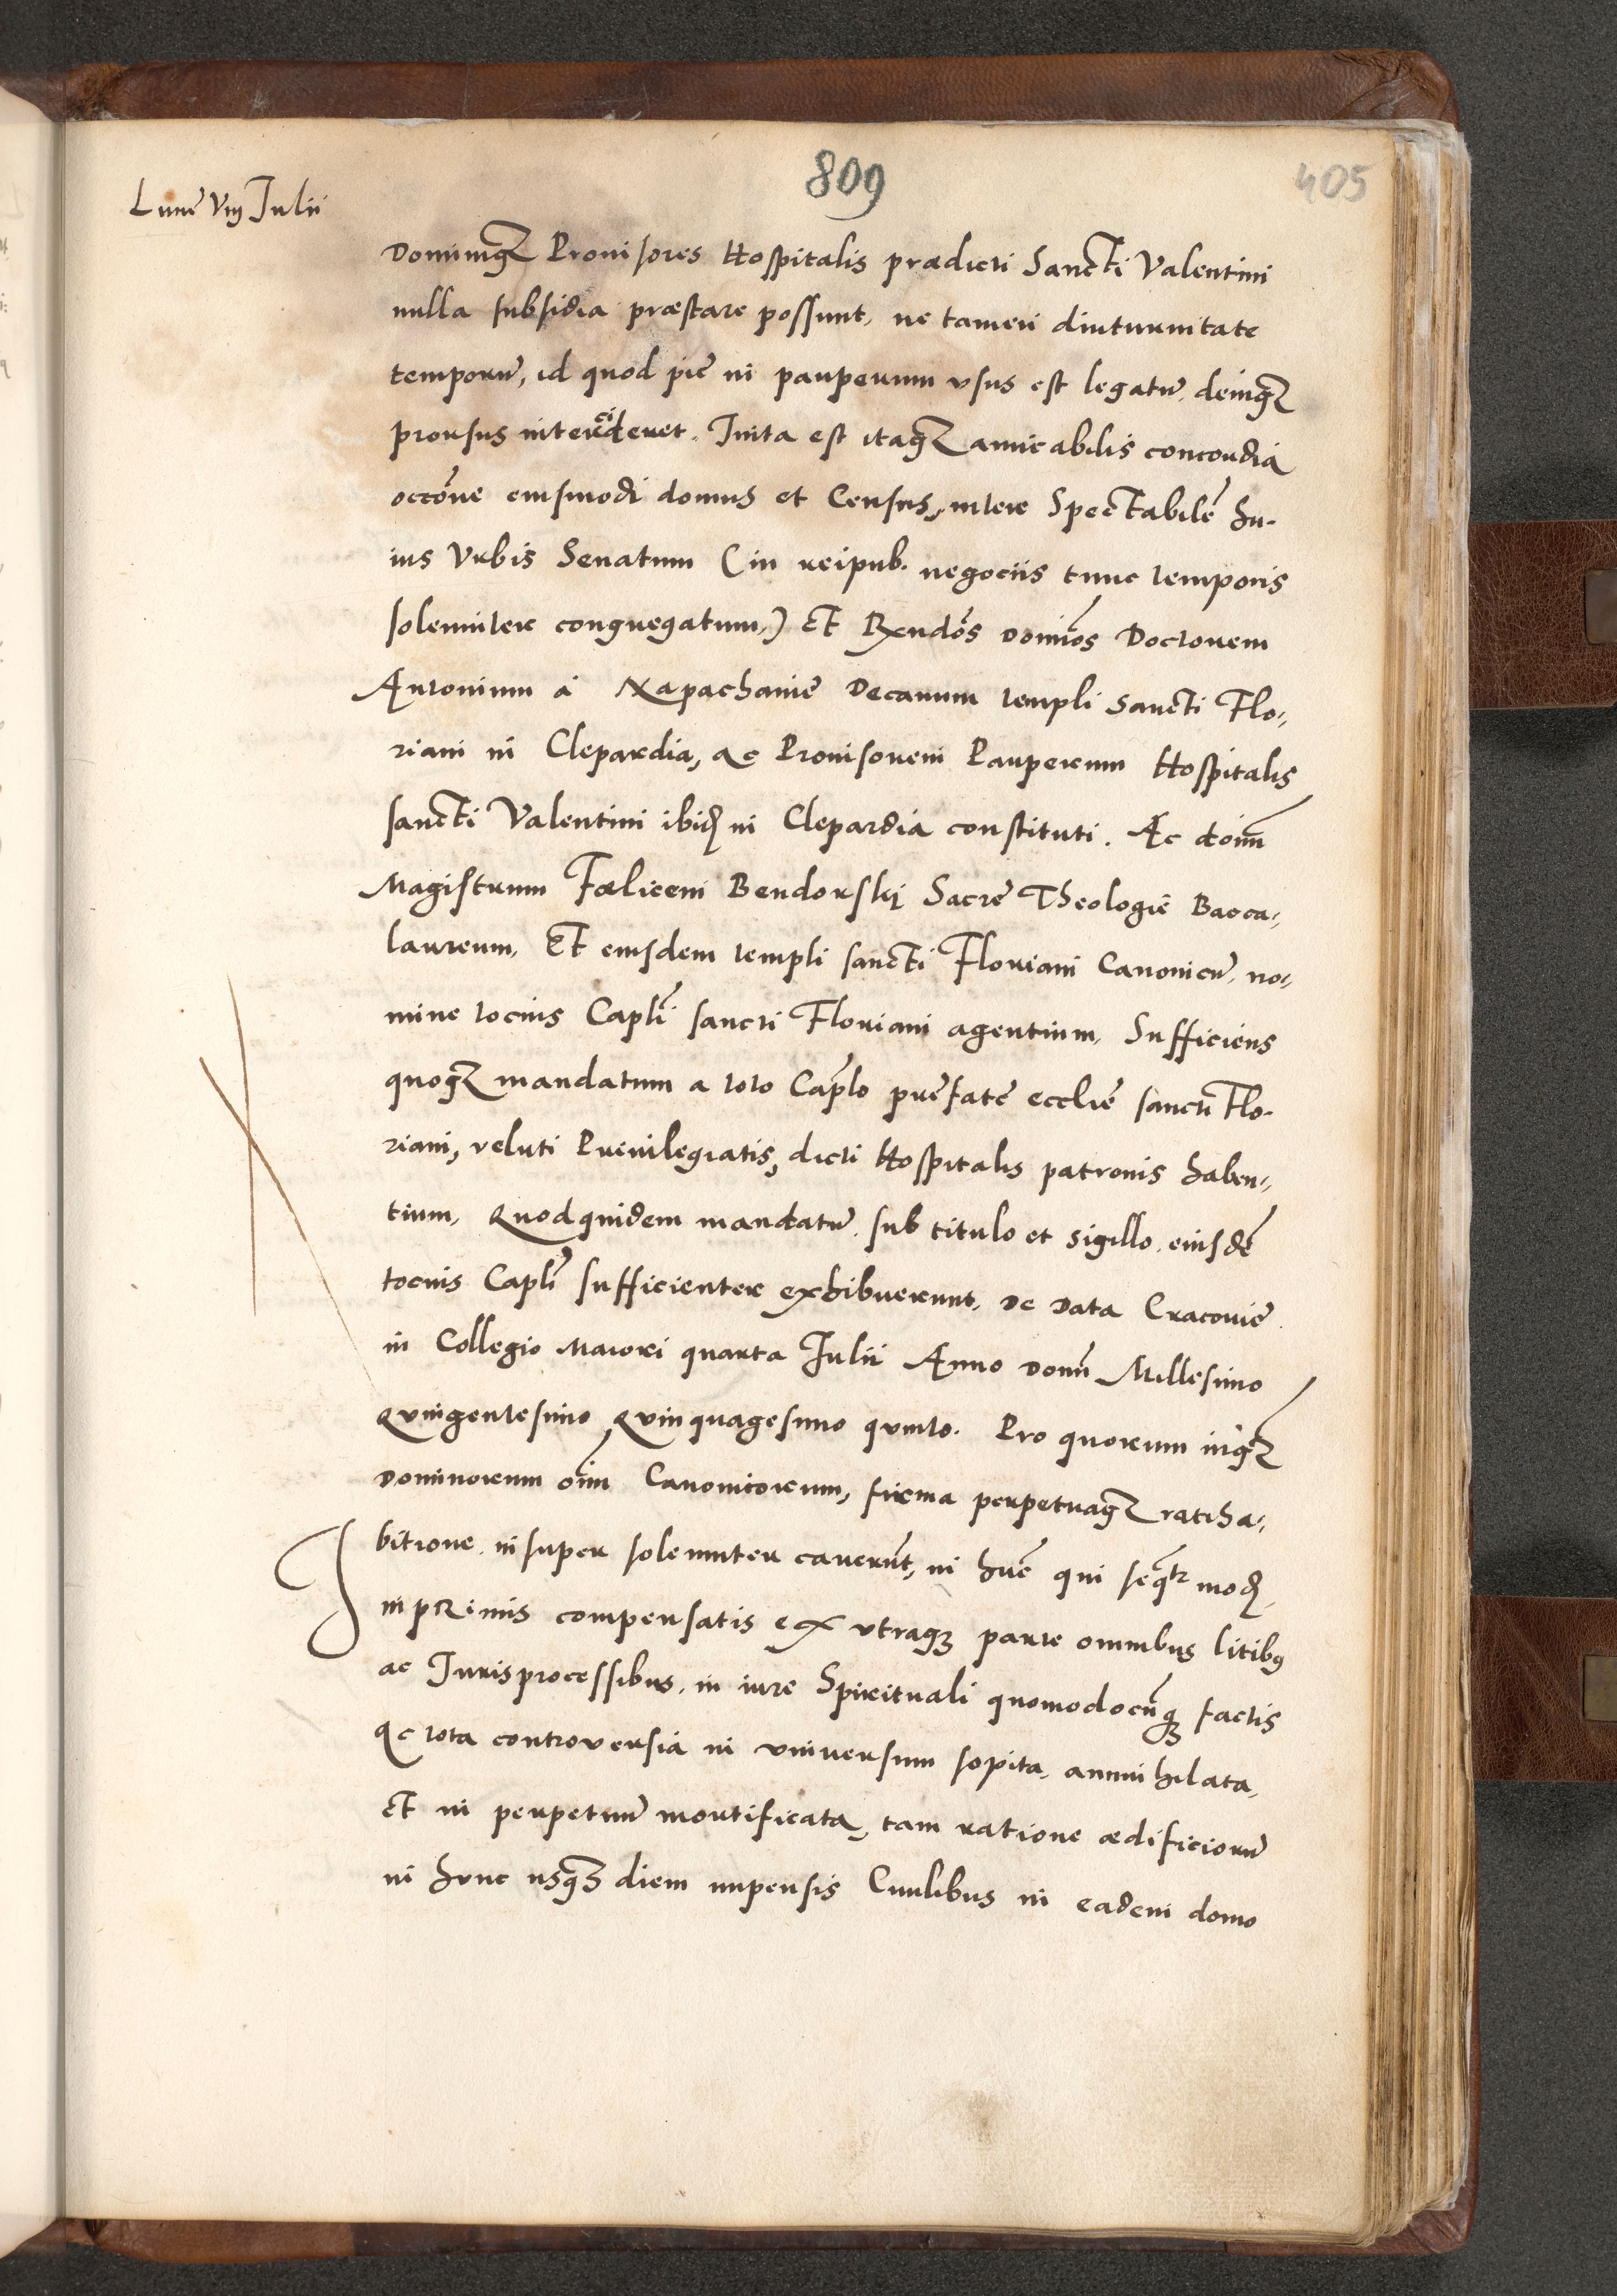 809
405
Lunę Viij Julii
Dominiq₃ Prouisores Hospitalis prædicti Sancti Valentini
nulla subsidia præstare possunt, ne tamen diuturnitate
temporū, id quod piè in pauperum vsus est legatū, deniq₃
prorsus intercideret. Inita est itaq₃ amicabilis concordia
occōne eiusmodi domus et Census, inter Spectabilē hu-
ius Vrbis Senatum (in reipub. negociis tunc temporis
solenniter congregatum,) Et Rxndōs Domiōs Doctorem
Antonium à Napachanie Decanum templi Sancti Flo-
riani in Clepardia, ac Prouisorem Pauperum Hospitalis
sancti Valentini ibid in Clepardia constituti. Ac doīm
Magistrum Fœlicem Bendorskÿ Sacrę Theologię Bacca-
laureum, Et eiusdem templi sancti Floriani Canonicū, no-
mine tocius Caplī sancti Floriani agentium, Sufficiens
quoq₃ mandatum a toto Caplo pręfatę ecclię sancti Flo-
riani, veluti Priuilegiatis, dicti Hospitalis patronis haben-
tium, Quodquidem mandatū, sub titulo et sigillo, eiusdē
tocius Caplī sufficienter exhibuerunt, de data Cracouię
in Collegio Maiori quarta Julii Anno Domī Millesimo
Quingentesimo Quinquagesimo quinto. Pro quorum inq₃
Dominorum oīm Canonicorum, firma perpetuaq₃ ratiha-
bitione, insuper solenniter cauerūt, in hūc qui seqtr mod,
Inprimis compensatis ex vtraq₃ parte omnibus litibus
ac Jurisprocessibus, in iure Spirituali quomodocūq₃ factis
ac tota controversia in vniuersum sopita, annihilata,
et in perpetuū mortificata, tam ratione ædificiorū
in hunc usq₃ diem impensis Ciuilibus in eadem domo